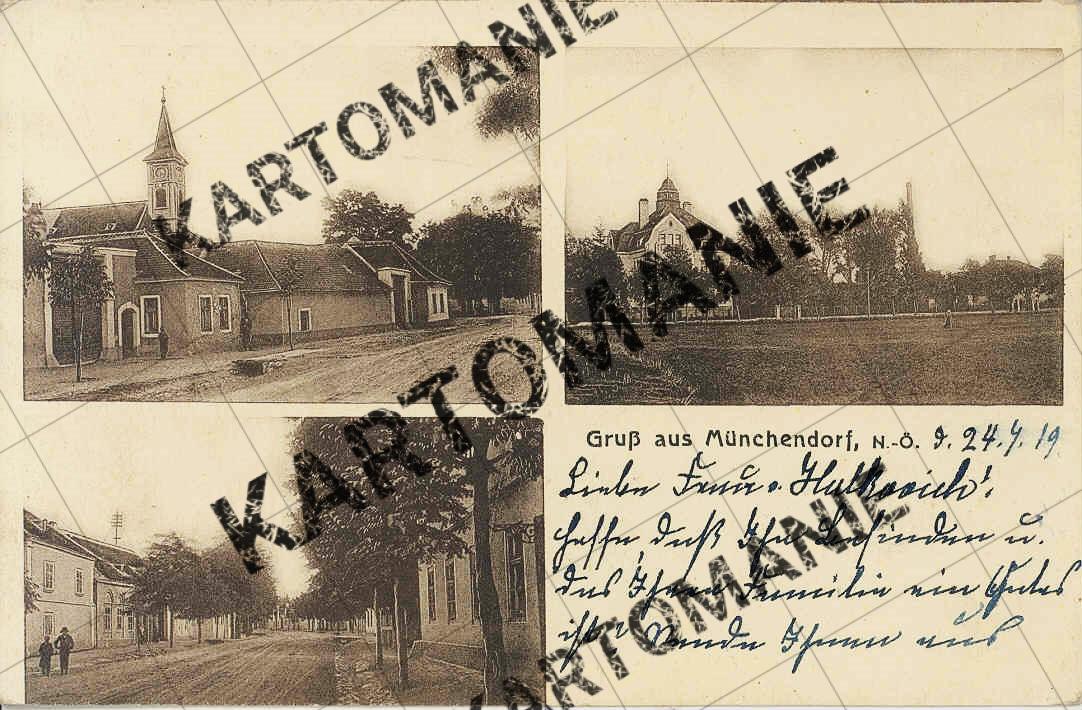 KARTOMANIE
KARTOMANIE
KARTOMANIE
KARTOMANIE
Gruß aus Münchendorf, N.-Ö. d. 24.7.19
Liebe Frau
hoffe, daß Ihr Befinden u.
das Ihrer Familie ein Gutes
ist? Sende Ihnen aus